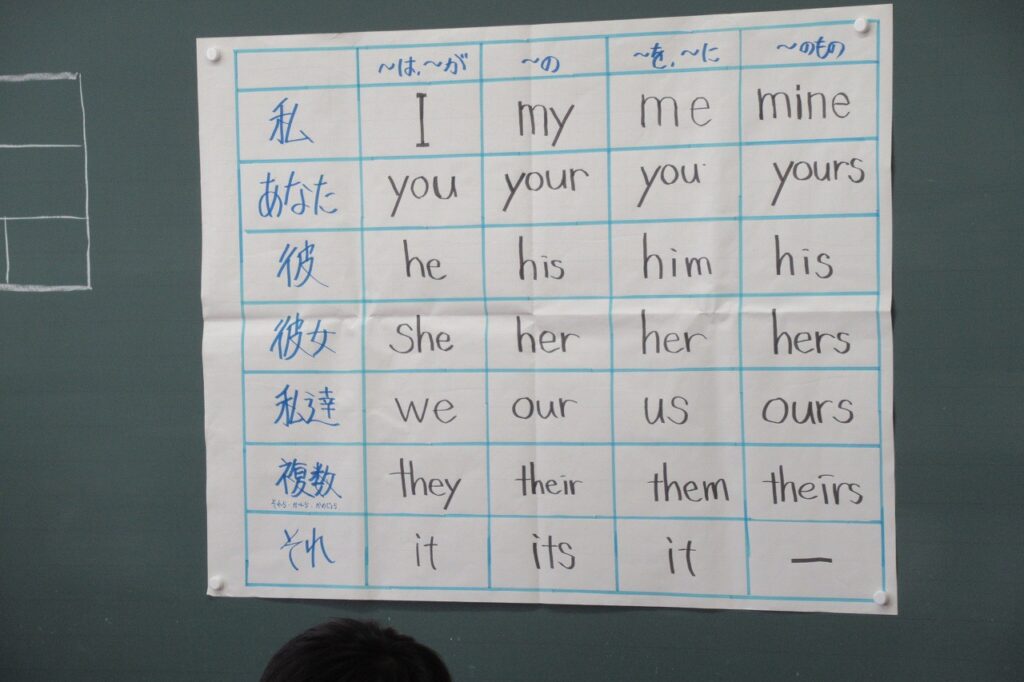 ～は、～が ～の ～を、～に ～のもの
私 I my me mine
あなた you your you yours
彼 he his him his
彼女 she her her hers
私達 we our us ours
複数 they their them theirs
それ it its it ー